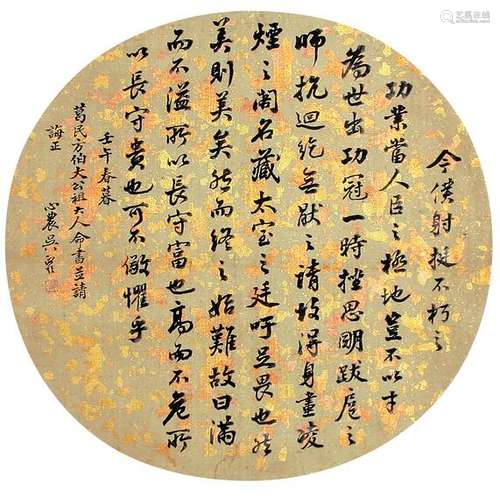 今僕射挺不朽之
功業當人臣之極地豈不以才
為世出功冠一時挫思明跋扈之
師抗迴紇無猒之請故得身畫凌
煙之閣名藏太室之廷吁足畏也然
美則美矣然而終之始難故曰滿
而不溢所以長守富也高而不危所
以長守貴也可不儆懼乎
壬午春暮
葛民方伯大公祖大人命書並請
誨正
心農吳